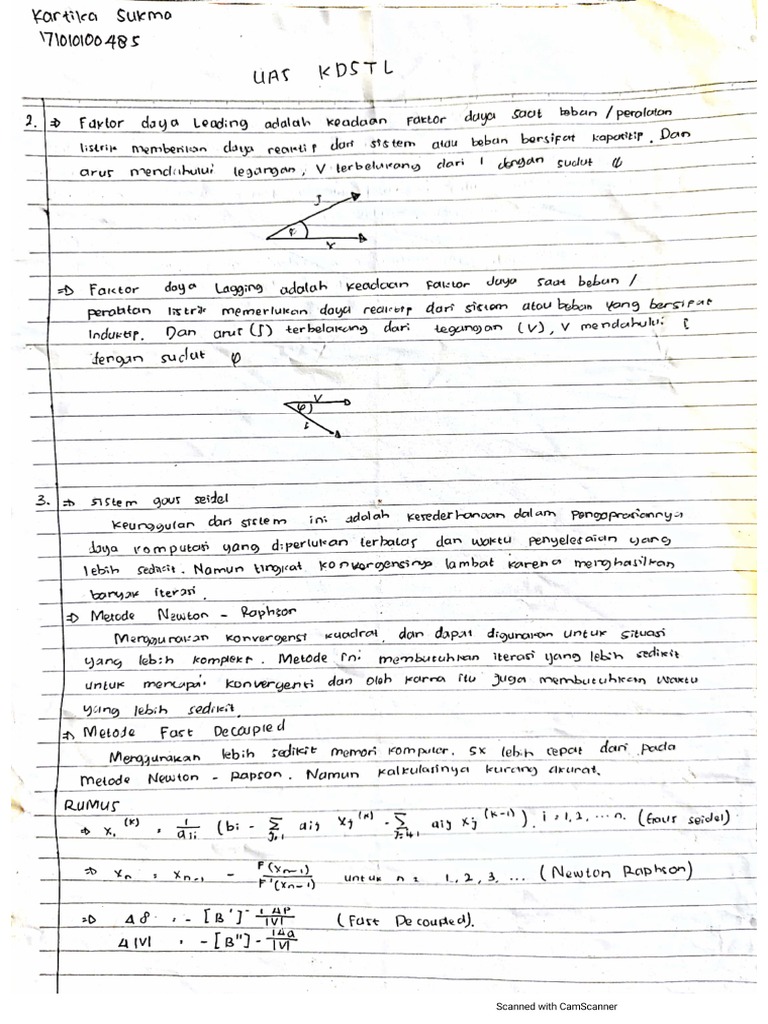 Kartika Sukma
171010100485
UAS KDSTL
2. ⇒ Faktor daya Leading adalah keadaan faktor daya saat beban / peralatan
listrik memberikan daya reaktip dari sistem atau beban bersifat kapatitip. Dan
arus mendahului tegangan, V terbelakang dari I dengan sudut φ
I
φ
V
⇒ Faktor daya Lagging adalah keadaan faktor daya saat beban /
peralatan listrik memerlukan daya reaktip dari sistem atau beban yang bersifat
Induktip. Dan arus (I) terbelakang dari tegangan (V), V mendahului I
dengan sudut φ
V
φ
I
3. ⇒ sistem gaus seidel
Keunggulan dari sistem ini adalah kesederhanaan dalam pengoprasiannya
daya komputasi yang diperlukan terbatas dan waktu penyelesaian yang
lebih sedikit. Namun tingkat konvergensinya lambat karena menghasilkan
banyak iterasi.
⇒ Metode Newton - Raphson
Menggunakan konvergensi kuadrat, dan dapat digunakan untuk situasi
yang lebih kompleks. Metode ini membutuhkan iterasi yang lebih sedikit
untuk mencapai konvergensi dan oleh karna itu juga membutuhkan waktu
yang lebih sedikit.
⇒ Metode Fast Decoupled
Menggunakan lebih sedikit memori komputer. 5x lebih cepat dari pada
metode Newton - Rapson. Namun kalkulasinya kurang akurat.
RUMUS
⇒ xᵢ^(k) = 1/aᵢᵢ (bi - Σ aij xj^(k) - Σ aij xj^(k-1)). i = 1, 2, ... n. (Gaus seidel)
⇒ xn = xn-1 - F(xn-1)/F'(xn-1) untuk n = 1, 2, 3, ... (Newton Raphson)
⇒ Δδ = -[B']⁻¹ ΔP/|V| (Fast Decoupled).
Δ|V| = -[B'']⁻¹ ΔQ/|V|
Scanned with CamScanner